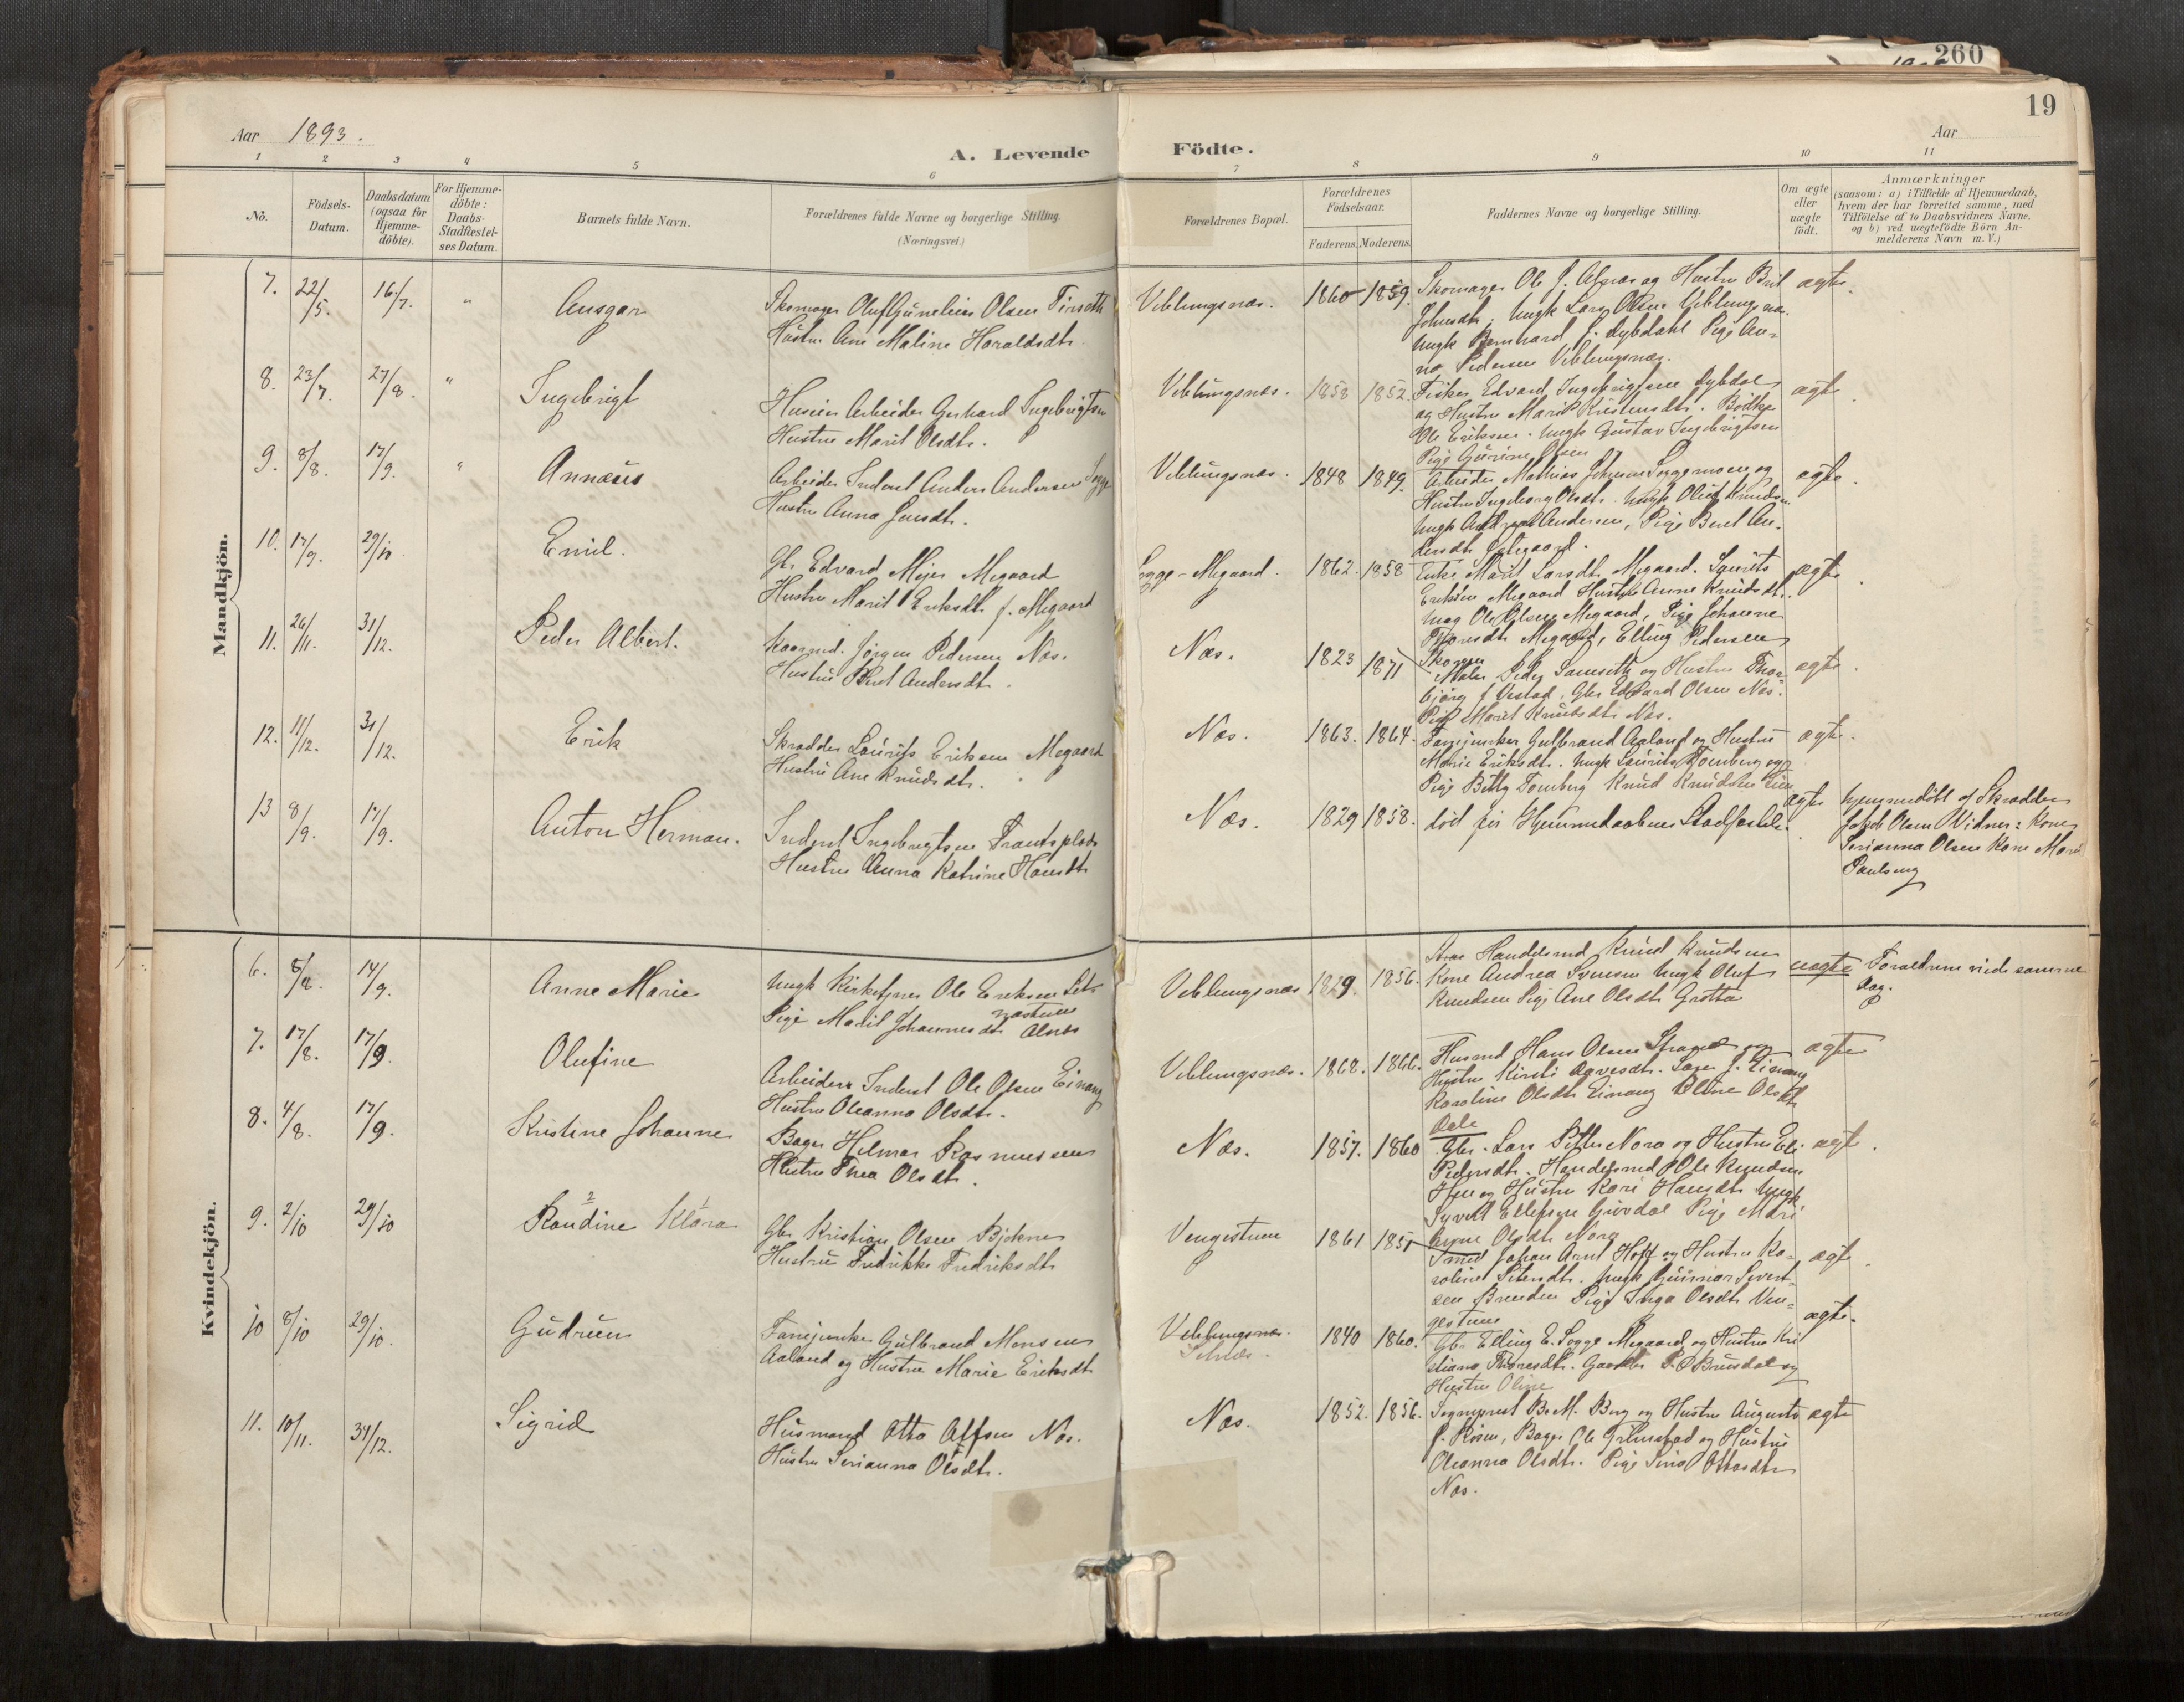 260
19
Aar 1893.
A. Levende Födte.
Aar
1 2 3 4 5 6 7 8 9 10 11
No.
Födsels-Datum.
Daabsdatum (ogsaa for Hjemme-döbte).
For Hjemme-döbte: Daabs-Stadfæstel-ses Datum.
Barnets fulde Navn.
Forældrenes fulde Navne og borgerlige Stilling.
(Næringsvei.)
Forældrenes Bopæl.
Forældrenes Födselsaar.
Faderens. Moderens.
Faddernes Navne og borgerlige Stilling.
Om ægte eller uægte födt.
Anmærkninger
(saasom: a) i Tilfælde af Hjemmedaab,
hvem der har forrettet samme, med
Tilföielse af to Daabsvidners Navne.
og b) ved uægtefödte Börn An-
melderens Navn m. V.)
Mandkjön.
7. 22/5. 16/7. " Ansgar
Skomager Oluf Olsen
Hustru Ane Maline Haraldsdtr.
Veblungsnæs. 1860 1859.
Skomager Ole J. Alnæs og Hustru Brit
Johnsdtr. Ungk Lars Olsen Veblungsnæs.
Ungk Bernhard J. Dybdahl Pige An-
na Pedersen Veblungsnæs.
ægte.
8. 23/7. 27/8. " Ingebrigt
Arbeider Gerhard Ingebrigtsen
Hustru Marit Olsdtr.
Veblungsnæs. 1858 1852.
Fisker Edvard Ingebrigtsen Dybdal
og Hustru Marit Kristensdtr. Bödker
Ole Eriksen. Ungk Gustav Ingebrigtsen
Pige Olsen
ægte.
9. 8/8. 17/9. " Annæus
Arbeider Inderst Anders Andersen Sogge
Hustru Anna Jensdtr.
Veblungsnæs. 1848 1849.
Arbeider Mathias Johnsen Soggemoen og
Hustru Ingeborg Olsdtr. Ungk Oluf Knudsen
Ungk Andersen, Pige Beret An-
dersdtr
ægte.
10. 17/9. 29/10 Emil.
Gbr Edvard Meyer Megaard
Hustru Marit Eriksdtr f. Megaard
Sogge-Megaard. 1862. 1858
Enke Marit Larsdtr. Megaard. Laurits
Eriksen Megaard Hustru Anne Knudsdtr.
Ung Ole Olsen Megaard, Pige Johanne
Thoresdtr Megaard, Elling Pedersen
ægte.
11. 26/11. 31/12. Peder Albert.
Kaarmd. Jörgen Pedersen Næs.
Hustru Beret Andersdtr.
Næs. 1823 1871
Maler Peder og Hustru Thor-
björg f Vestad, Gbr Edvard Olsen Næs.
Pige Marit Knudsdtr Næs.
ægte.
12. 11/12. 31/12. Erik
Skrædder Laurits Eriksen Megaard
Hustru Ane Knudsdtr.
Næs. 1863. 1864.
Fanejunker Gulbrand Aaland og Hustru
Marie Eriksdtr. Ungk Laurits Tomberg og
Pige Betty Tomberg Knud Knudsen
ægte.
13 8/9. 17/9. Anton Herman.
Inderst Ingebrigtsen
Hustru Anna Katrine Hansdtr
Næs. 1829 1858.
död för Hjemmedaabens Stadfæstelse.
ægte
hjemmedöbt af Skrædder
Jakob Olsen Vidner: Kone
Serianna Olsen Kone Marit
Paulsen
Kvindekjön.
6. 8/8. 14/9. Anne Marie
Ungk Kirketjener Ole Eriksen Set-
næstuen
Pige Marit Johannesdtr Alnæs
Veblungsnæs 1829. 1856.
Handelsmd Knud Knudsen
Kone Andrea Ungk Oluf
Knudsen Pige Ane Olsdtr Grötta
uægte
Forældrene viede samme
Dag.
7. 17/8. 17/9. Olufine
Arbeider Inderst Ole Olsen Einang
Hustru Oleanna Olsdtr.
Veblungsnæs. 1868. 1866.
Husmd Hans Olsen og
Hustru Kirsti Lars J. Einang
Karoline Olsdtr Einang Oline Olsdtr
Dale
ægte
8. 4/8. 17/9. Kristine Johanne
Bager Helmar Rasmussen
Hustru Thea Olsdtr.
Næs. 1857. 1860
Gbr. Lars Petter Nora og Hustru Eli
Pedersdtr. Handelsmd Ole Knudsen
og Hustru Kari Hansdtr Ungk
Syvert Ellefsen Pige Mari
Olsdtr Nora
ægte.
9. 2/10 29/10 2 Randine 1 Klara
Gbr Kristian Olsen
Hustru Fredrikke Fredriksdtr
Vengestuen 1861 1851
Smed Johan Arnt Hoff og Hustru Ka-
roline Petersdtr. Ungk Gunnar Syvert-
sen Brenden Pige Inga Olsdtr Ven-
gestuen
ægte.
10 8/10 29/10. Gudrun
Fanejunker Gulbrand Monsen
Aaland og Hustru Marie Eriksdtr
Veblungsnæs.
Setnæs. 1840 1860.
Gbr Elling E. Sogge Megaard og Hustru Kri
stiane Thoresdtr. og
Hustru Oline
ægte.
11. 10/11. 31/12. Sigrid
Husmand Otto Næs.
Hustru Serianna Olsdtr.
Næs. 1852. 1856.
Sogneprest B. M. Berg og Hustru Augusta
f. Rosen, Bager Ole Grimstad og Hustru
Oleanna Olsdtr. Pige Sina Ottosdtr
Næs.
ægte